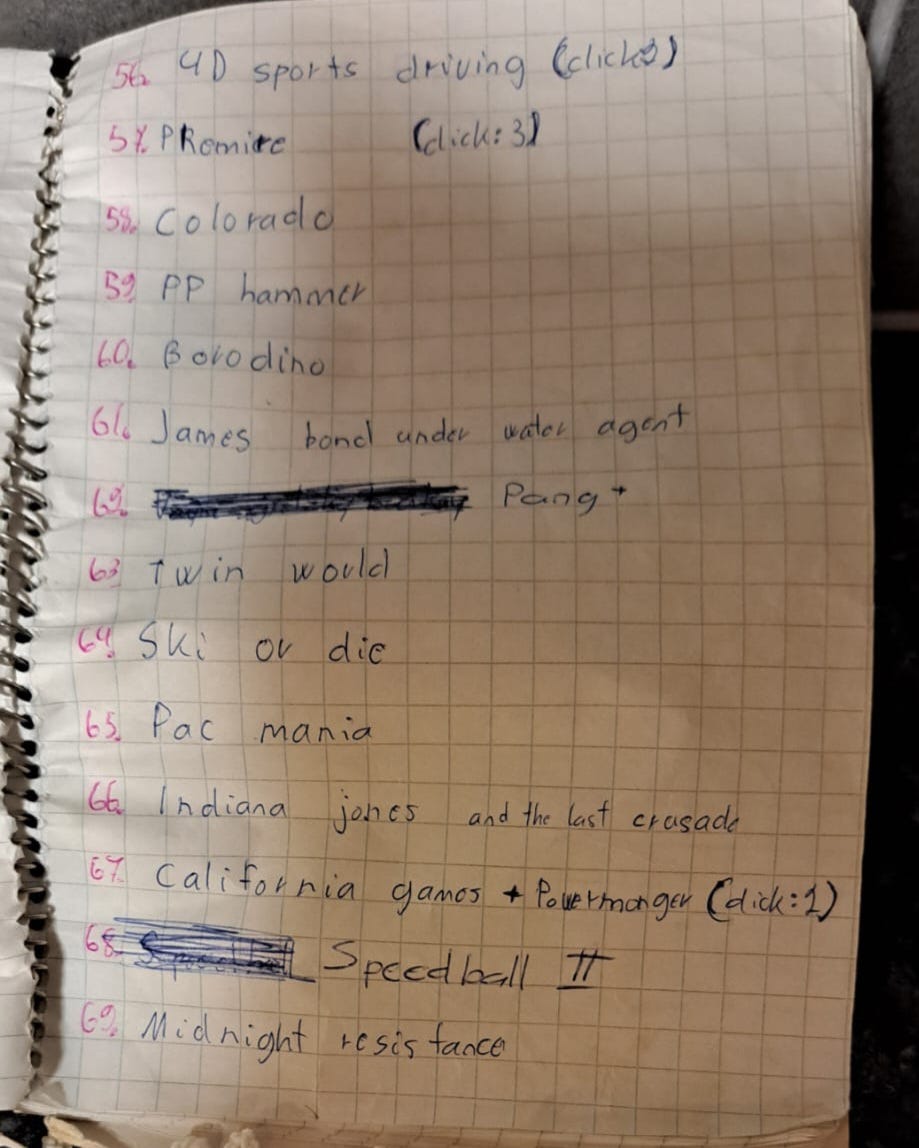 56. 4D sports driving (click2)
57. PRomice (click:3)
58. Colorado
59 PP hammer
60. Borodino
61. James bond under water agent
62. Pang +
63 Twin would
64. Ski or die
65. Pac mania
66. Indiana jones and the last crusade
67. California games + Powermonger (click:1)
68. Speedball II
69. Midnight resistance